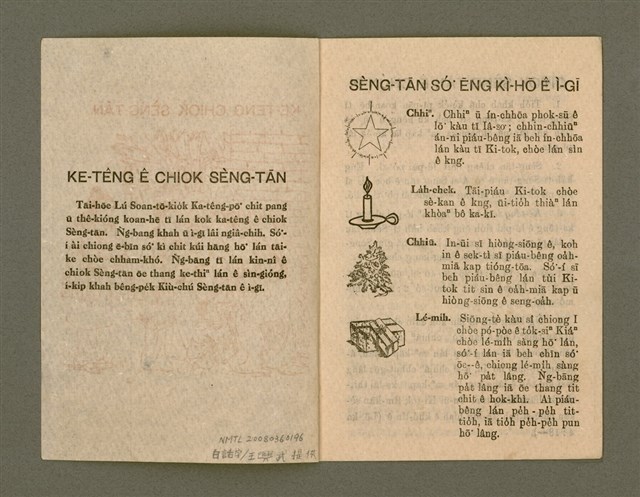 KE-TÊNG Ê CHIOK SÈNG-TÀN
Tāi-hōe Lú Soan-tō-kio̍k Ka-têng-pō͘ chit pang
ū thê-kióng koan-hē tī lán kok ka-têng ê chiok
Sèng-tàn. Ǹg-bāng khah ū ì-gī lâi ngiâ-chih. Só͘-
í ài chiong ē-bīn só͘ kì chit kúi hāng hō͘ lán tāi-
ke chòe chham-khó. Ǹg-bāng tī lán kin-nî ê
chiok Sèng-tàn ōe thang ke-thiⁿ lán ê sìn-gióng,
í-ki̍p khah bêng-pe̍k Kiù-chú Sèng-tàn ê ì-gī.
NMTL 20080360196
SÈNG-TÀN SÓ͘ ĒNG KÌ-HŌ Ê Ì-GĪ
Chhiⁿ. Chhiⁿ ū ín-chhōa phok-sū ê
lō͘ kàu tī Iâ-so͘; chhin-chhiūⁿ
án-ni piáu-bêng iā beh ín-chhōa
lán kàu tī Ki-tok, chòe lán sìn
ê kng.
La̍h-chek. Tāi-piáu Ki-tok chòe
sè-kan ê kng, ūi-tio̍h thiàⁿ lán
khòaⁿ bô ka-kī.
Chhiū. In-ūi sī hiòng-siōng ê, koh
in ê sek-tì sī piáu-bêng oa̍h-
miā kap tióng-tōa. Só͘-í sī
beh piáu-bêng lán tùi Ki-
tok tit sin ê oa̍h-miā kap ū
hiòng-siōng ê seng-oa̍h.
Lé-mi̍h. Siōng-tè kàu sī chiong I
chòe pó-pòe ê to̍k-siⁿ Kiáⁿ
chòe lé-mi̍h sàng hō͘ lán,
só͘-í lán iā beh chīn só͘
ōe--ê, chiong lé-mi̍h sàng
hō͘ pa̍t lâng. Ǹg-bāng
pa̍t lâng iā ōe thang tit
chit ê hok-khì. Ài piáu-
bêng lán pe̍h-pe̍h tit-
tio̍h, iā tio̍h pe̍h-pe̍h pun
hō͘ lâng.